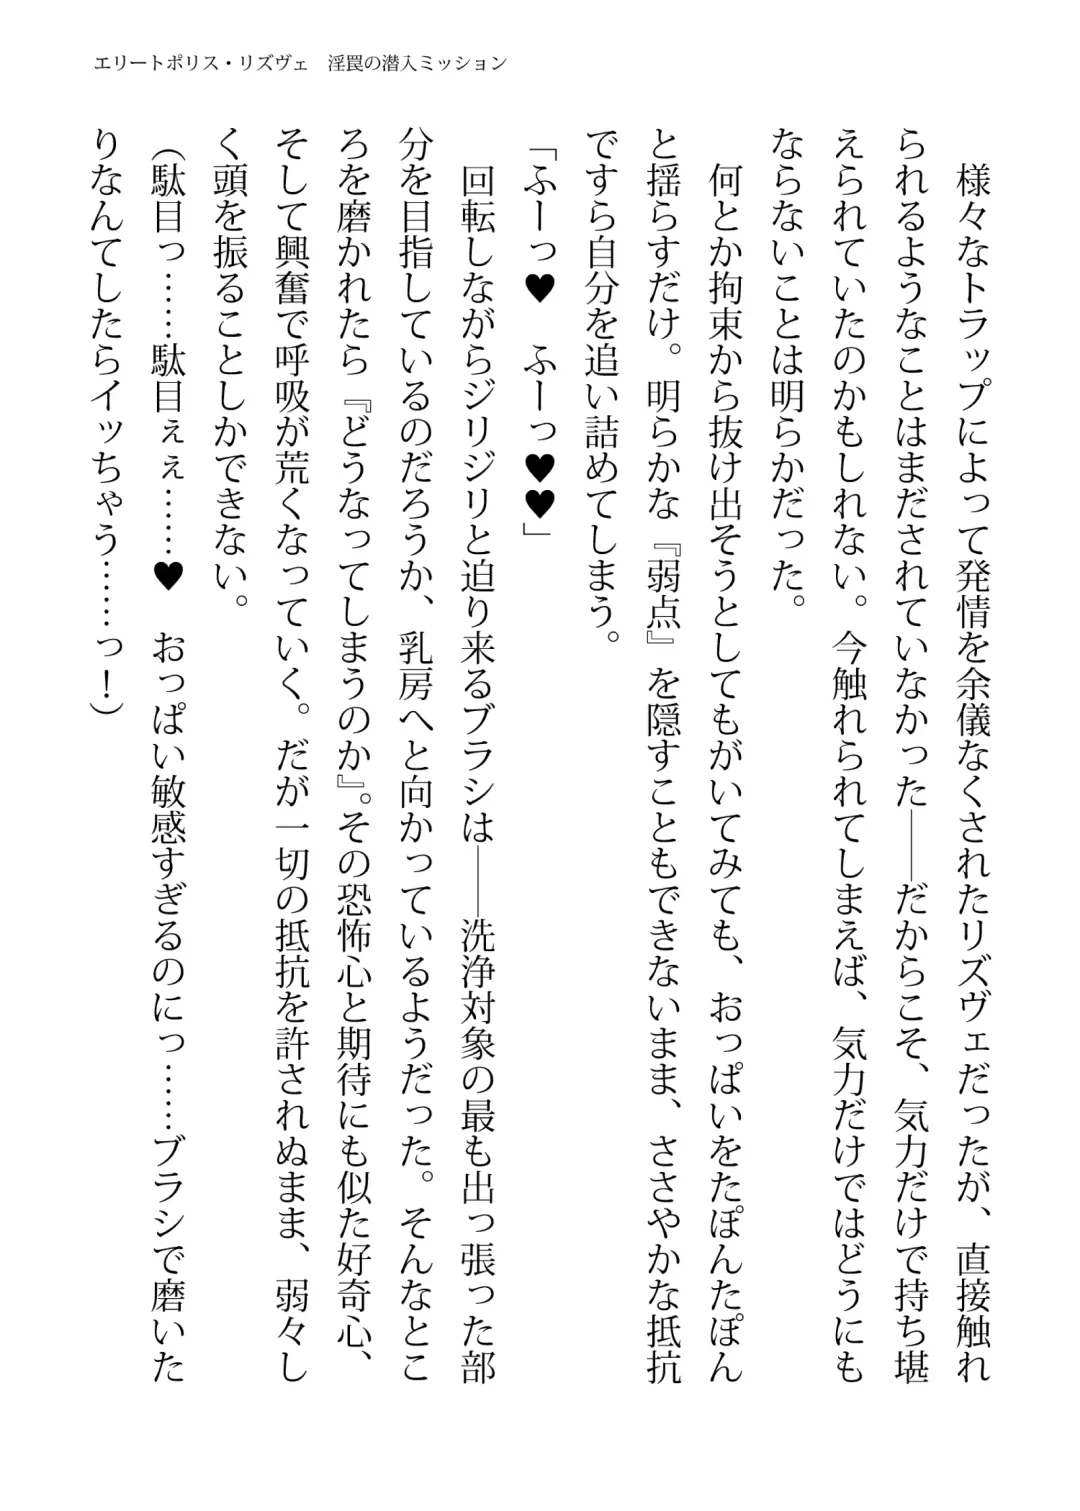 エリートポリス・リズヴェ　淫罠の潜入ミッション
　様々なトラップによって発情を余儀なくされたリズヴェだったが、直接触れ
られるようなことはまだされていなかった――だからこそ、気力だけで持ち堪
えられていたのかもしれない。今触れられてしまえば、気力だけではどうにも
ならないことは明らかだった。
　何とか拘束から抜け出そうとしてもがいてみても、おっぱいをたぽんたぽん
と揺らすだけ。明らかな『弱点』を隠すこともできないまま、ささやかな抵抗
ですら自分を追い詰めてしまう。
「ふーっ♥　ふーっ♥♥」
　回転しながらジリジリと迫り来るブラシは――洗浄対象の最も出っ張った部
分を目指しているのだろうか、乳房へと向かっているようだった。そんなとこ
ろを磨かれたら『どうなってしまうのか』。その恐怖心と期待にも似た好奇心、
そして興奮で呼吸が荒くなっていく。だが一切の抵抗を許されぬまま、弱々し
く頭を振ることしかできない。
（駄目っ……駄目ぇぇ……♥　おっぱい敏感すぎるのにっ……ブラシで磨いた
りなんてしたらイッちゃう……っ！）